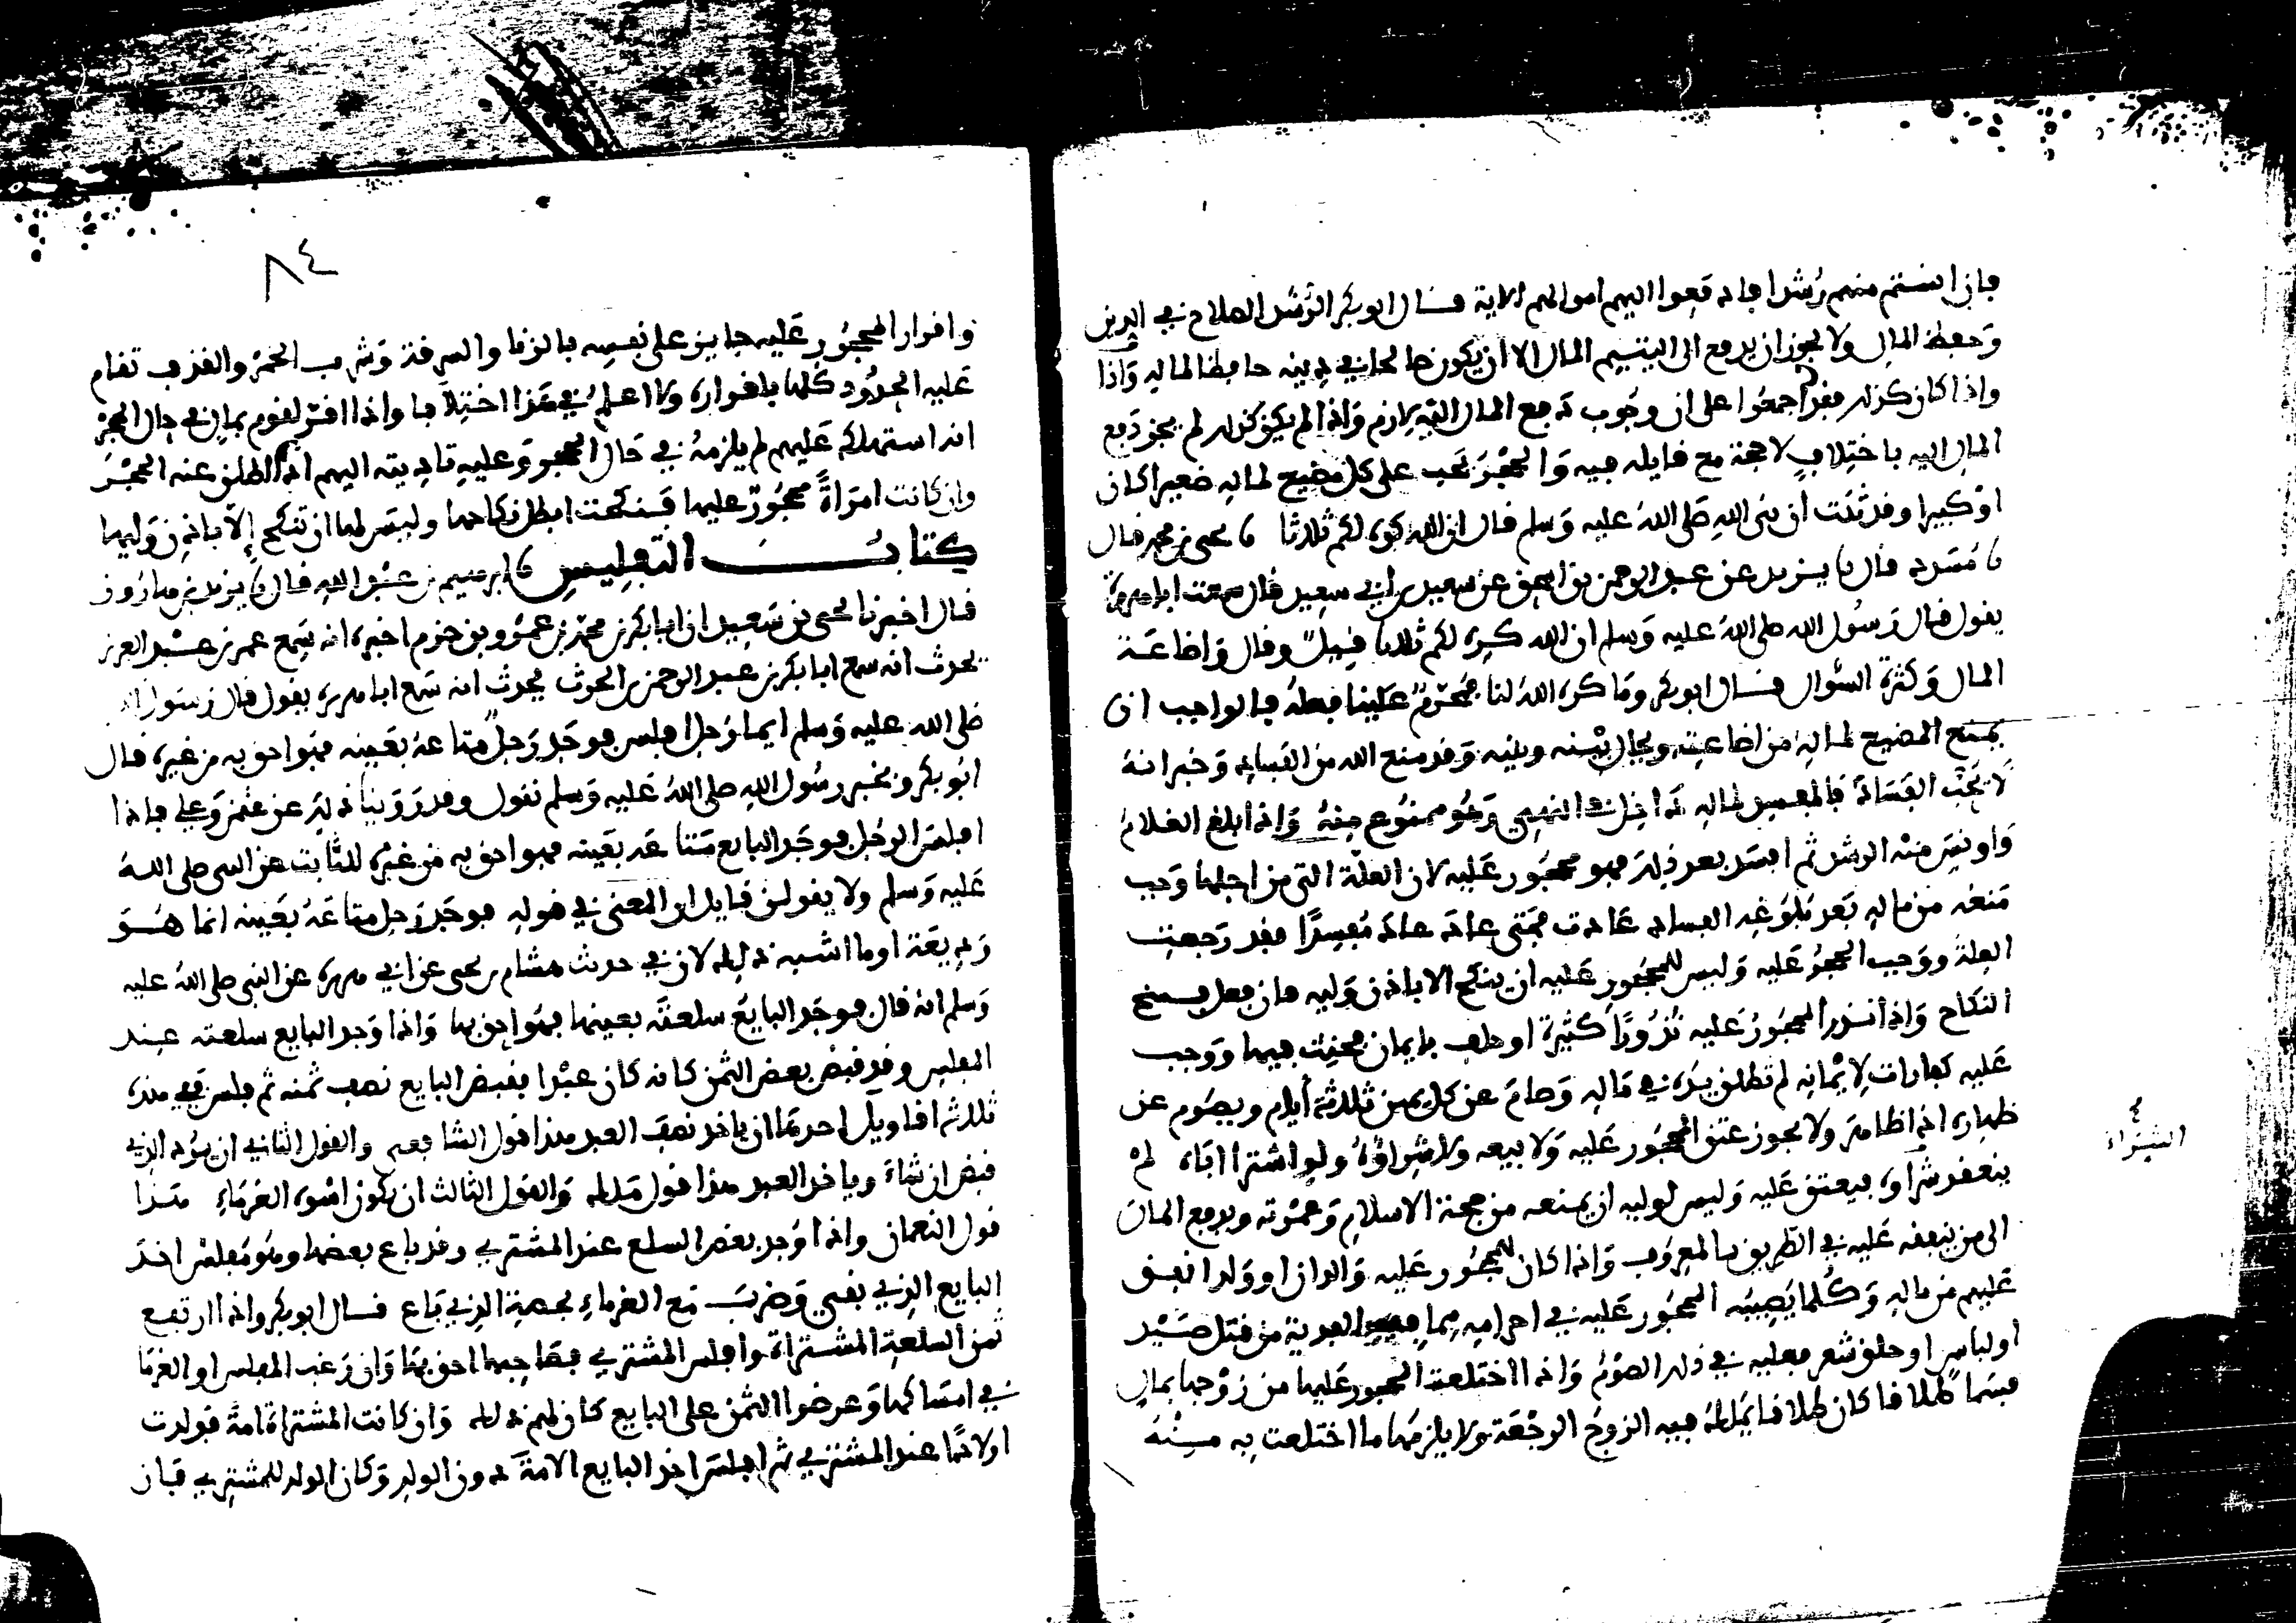 فإن آنستم منهم رشدا فادفعوا إليهم أموالهم الآية قال أبو بكر الرشد الصلاح في الدين
وحفظ المال ولا يجوز أن يدفع إلى اليتيم المال إلا أن يكون صالحا في دينه حافظا لماله وإذا
وإذا كان كذلك فقد أجمعوا على أن وجوب دفع المال إليه لازم وإذا لم يكن كذلك لم يجز دفع
المال إليه باختلاف لا حجة مع قايله فيه والحجر يجب على كل مضيع لماله صغيرا كان
أو كبيرا وقد ثبت أن نبي الله صلى الله عليه وسلم قال إن الله كره لكم ثلاثا نا يحيى بن محمد قال
نا مسدد قال نا يزيد عن عبد الرحمن بن إسحق عن سعيد بن أبي سعيد قال سمعت أبا هريرة
يقول قال رسول الله صلى الله عليه وسلم إن الله كره لكم ثلاثا قيل وقال وإضاعة
المال وكثرة السؤال قال أبو بكر وما كره الله لنا محرم علينا فعله فالواجب أن
يمنع المضيع لماله من إضاعته ويحال بينه وبينه وقد منع الله من الفساد وخبر أنه
لا يحب الفساد فالمفسد لماله داخل في النهي وهو ممنوع منه وإذا بلغ الغلام
وأونس منه الرشد ثم أفسد بعد ذلك فهو محجور عليه لأن العلة التي من أجلها وجب
منعه من ماله بعد بلوغه الفساد عادت فمتى عاد عاد مفسدا فقد رجعت
العلة ووجب الحجر عليه وليس للمحجور عليه أن ينكح إلا بإذن وليه فإن فعل فسخ
النكاح وإذا نذر المحجور عليه نذورا كثيرة أو حلف بأيمان فحنث فيها ووجب
عليه كفارات لأيمانه لم تطلق يده في ماله وصام عن كل يمين ثلاثة أيام ويصوم عن
ظهاره إذا ظاهر ولا يجوز عتق المحجور عليه ولا بيعه ولا شراؤه ولو اشترا أباه لم
الشراء
ينعقد شراوه فيعتق عليه وليس لوليه أن يمنعه من حجة الإسلام وعمرته ويدفع المال
إلى من ينفقه عليه في الطريق بالمعروف وإذا كان للمحجور عليه والدان أو ولد أنفق
عليهم من ماله وكلما يصيبه المحجور عليه في إحرامه مما فيه الفدية من قتل صيد
أو لباس أو حلق شعر فعليه في ذلك الصوم وإذا اختلعت المحجور عليها من زوجها بمال
فسما طلاقا كان طلاقا يملك فيه الزوج الرجعة ولا يلزمها ما اختلعت به منه
٨٤
وإقرار المحجور عليه جايز على نفسه بالزنا والسرقة وشرب الخمر والقذف تقام
عليه الحدود كلها بإقراره ولا أعلم في هذا اختلافا وإذا أقر لقوم بمال في حال الحجر
أنه استهلكه عليهم لم يلزمه في حال الحجر وعليه تاديته إليهم إذا أطلق عنه الحجر
وإن كانت امرأة محجور عليها فنكحت أبطل نكاحها وليس لها أن تنكح إلا بإذن وليها
كتاب التفليس نا إبرهيم بن عبد الله قال نا يزيد بن هارون
قال أخبرنا يحيى بن سعيد أن أبا بكر بن محمد بن عمرو بن حزم أخبره أنه سمع عمر بن عبد العزيز
يحدث أنه سمع أبا بكر بن عبد الرحمن بن الحرث يحدث أنه سمع أبا هريرة يقول قال رسول الله
صلى الله عليه وسلم أيما رجل أفلس فوجد رجل متاعه بعينه فهو أحق به من غيره قال
أبو بكر وبخبر رسول الله صلى الله عليه وسلم نقول وقد روينا ذلك عن عثمن وعلي فإذا
أفلس الرجل فوجد البايع متاعه بعينه فهو أحق به من غيره للثابت عن النبي صلى الله
عليه وسلم ولا يقولن قايل إن المعنى في قوله فوجد رجل متاعه بعينه إنما هو
وديعة أو ما أشبه ذلك لأن في حديث هشام بن يحيى عن أبي هريرة عن النبي صلى الله عليه
وسلم أنه قال فوجد البايع سلعته بعينها فهو أحق بها وإذا وجد البايع سلعته عند
المفلس وقد قبض بعض الثمن كأنه كان عبدا فقبض البايع نصف ثمنه ثم فلس ففي هذه
ثلاثة أقاويل أحدها أن ياخذ نصف العبد هذا قول الشافعي والقول الثاني أن يرد الذي
قبض إن شاء وياخذ العبد هذا قول ملك والقول الثالث أن يكون أسوة الغرماء هذا
قول النعمان وإذا وجد بعض السلع عند المشتري وقد باع بعضها وهو مفلس أخذ
البايع الذي بقي وضرب مع الغرماء بحصة الذي باع قال أبو بكر وإذا ارتفع
ثمن السلعة المشتراة وأفلس المشتري فصاحبها أحق بها وإن رغب المفلس أو الغرما
في إمساكها وعرضوا الثمن على البايع كان لهم ذلك وإن كانت المشتراة أمة فولدت
أولادا عند المشتري ثم أفلس أخذ البايع الأمة دون الولد وكان الولد للمشتري فإن